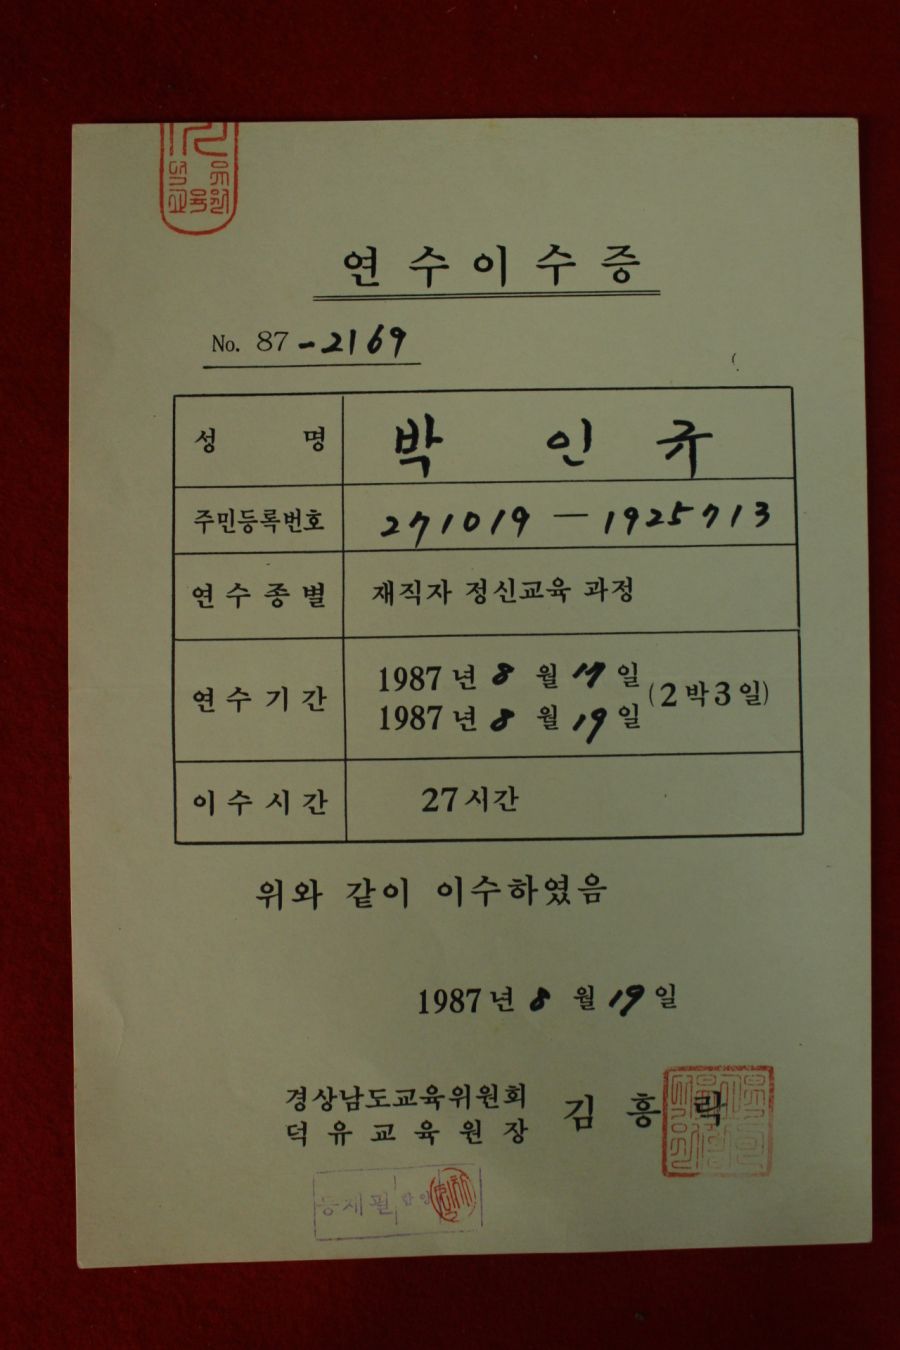 연수이수증
No. 87-2169
성 명 박 인 규
주민등록번호 271019-1925713
연수종별 재직자 정신교육 과정
연수기간 1987년 8월 17일
1987년 8월 19일 (2박3일)
이수시간 27시간
위와 같이 이수하였음
1987년 8월 19일
경상남도교육위원회
덕유교육원장 김흥락
등재필